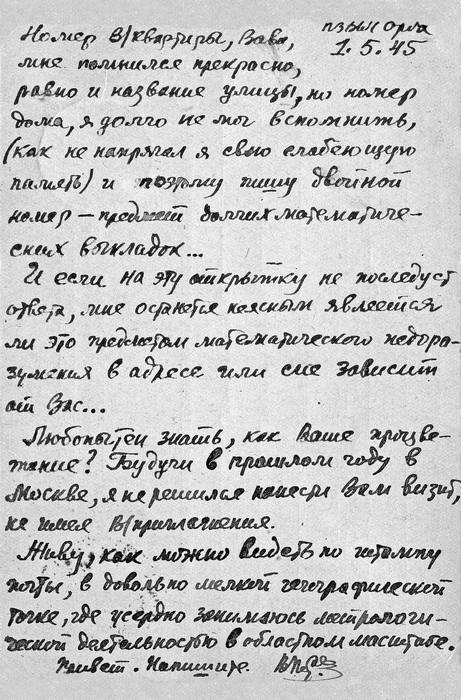 1.5.45
Номер В/квартиры, Вава,
мне помнился прекрасно,
равно и название улицы, но номер
дома, я долго не мог вспомнить,
(как не напрягал я свою слабеющую
память) и поэтому пишу двойной
номер — предмет долгих математиче-
ских выкладок...
И если на эту открытку не последует
ответа, мне останется неясным является
ли это предметом математического недора-
зумения в адресе или сие зависит
от Вас...
Любопытен знать, как Ваше процве-
тание? Будучи в прошлом году в
Москве, я не решился нанести Вам визит,
не имея В/приглашения.
Живу, как можно видеть по штампу
почты, в довольно мелкой географической
точке, где усердно занимаюсь
деятельностью в областном масштабе.
Привет. Напишите.